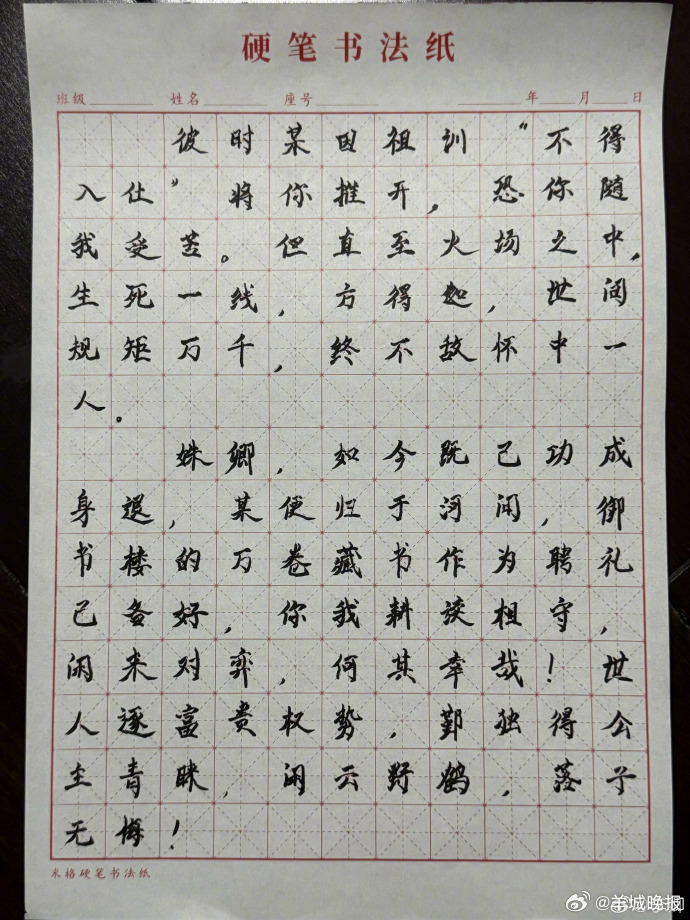 硬笔书法纸
班级 姓名 座号 年 月 日
彼时某因祖训“不得
入仕”将你推开，恐你随
我受苦。但直至火场之中，
生死一线，方得知，世间
规矩万千，终不敌怀中一
人。
姝卿，如今既已功成
身退，某便归于河间，御
书楼的万卷藏书作为聘礼
已备好，你我耕读相守，
闲来对弈，何其幸哉！世
人逐富贵权势，鄞独得公
主青睐，闲云野鹤，落子
无悔！
米格硬笔书法纸
@羊城晚报